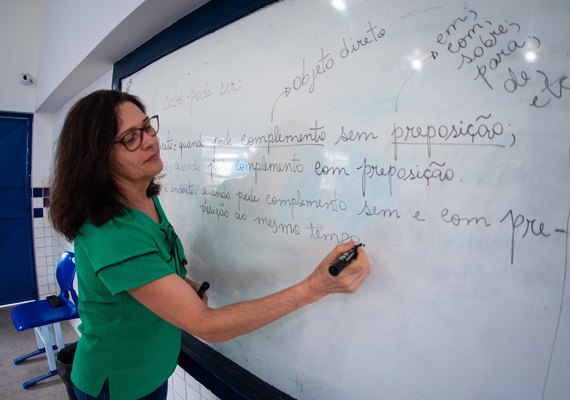 objeto direto
em;
com;
sobre;
para;
de
etc
pode ser:
quando pede complemento sem preposição;
quando complemento com preposição.
e indireto: quando pede complemento sem e com pre-
posição ao mesmo tempo